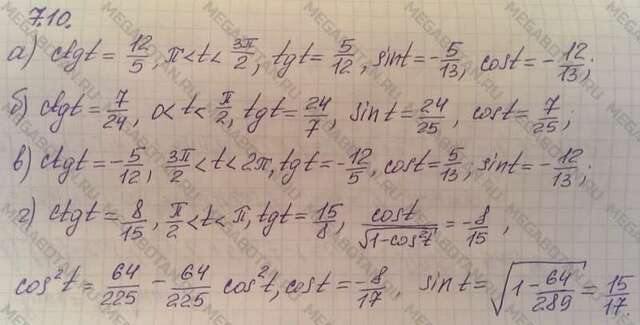 7.10.
а) ctgt = 12/5, π < t < 3π/2, tgt = 5/12, sint = -5/13, cost = -12/13;
б) ctgt = 7/24, 0 < t < π/2, tgt = 24/7, sint = 24/25, cost = 7/25;
в) ctgt = -5/12, 3π/2 < t < 2π, tgt = -12/5, cost = 5/13, sint = -12/13;
г) ctgt = 8/15, π/2 < t < π, tgt = 15/8, cost/√(1-cos²t) = -8/15,
cos²t = 64/225 - 64/225 cos²t, cost = -8/17, sint = √(1 - 64/289) = 15/17.